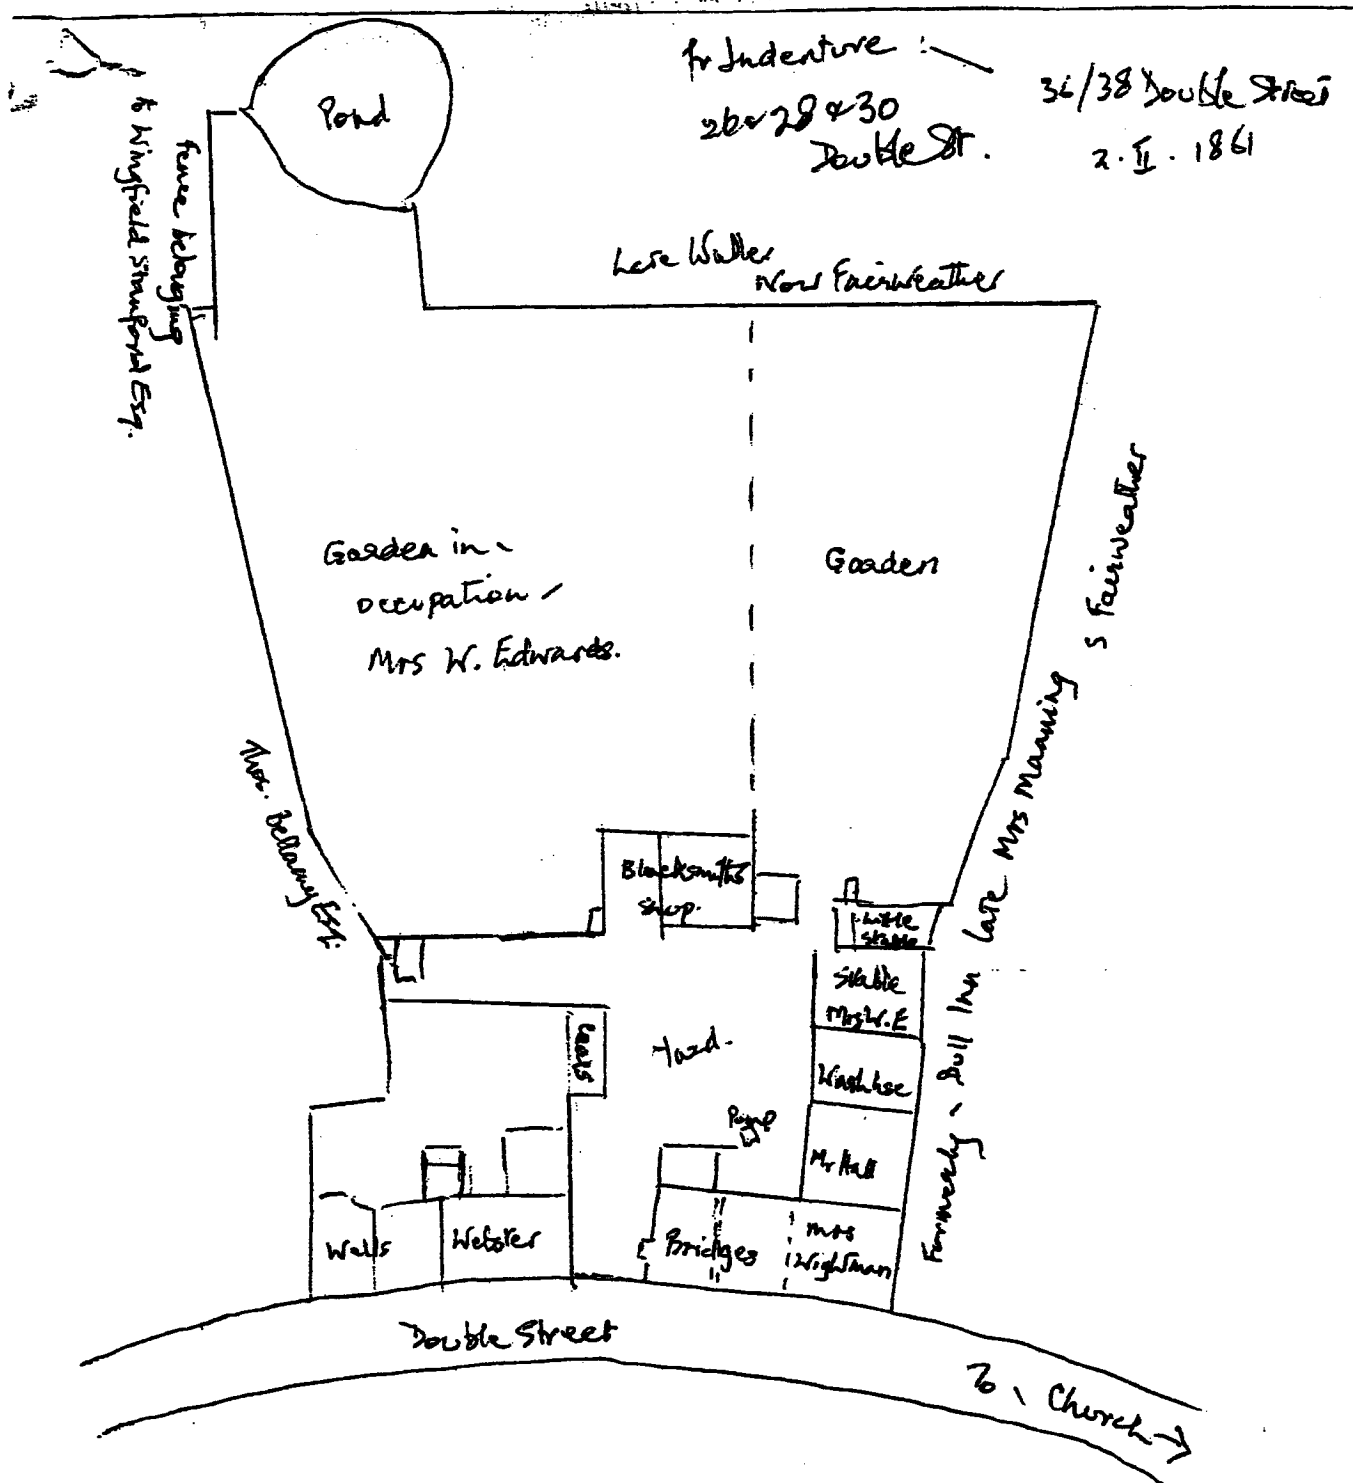 fr Indenture :
26 & 28 & 30
Double St.
36/38 Double Street
2. II. 1861
Pond
fence belonging
to Wingfield Stanford Esq.
Late Waller
Now Fairweather
Garden in
occupation
Mrs W. Edwards.
Garden
S Fairweather
Thos. Bellamy Esq.
Blacksmiths
Shop.
Little
Stable
Stable
Mrs W. E
Washhse
Mr Hall
Yard.
Pump
Formerly Bull Inn Late Mrs Manning
Walls
Webster
Bridges
Mrs
Wightman
Double Street
To Church →